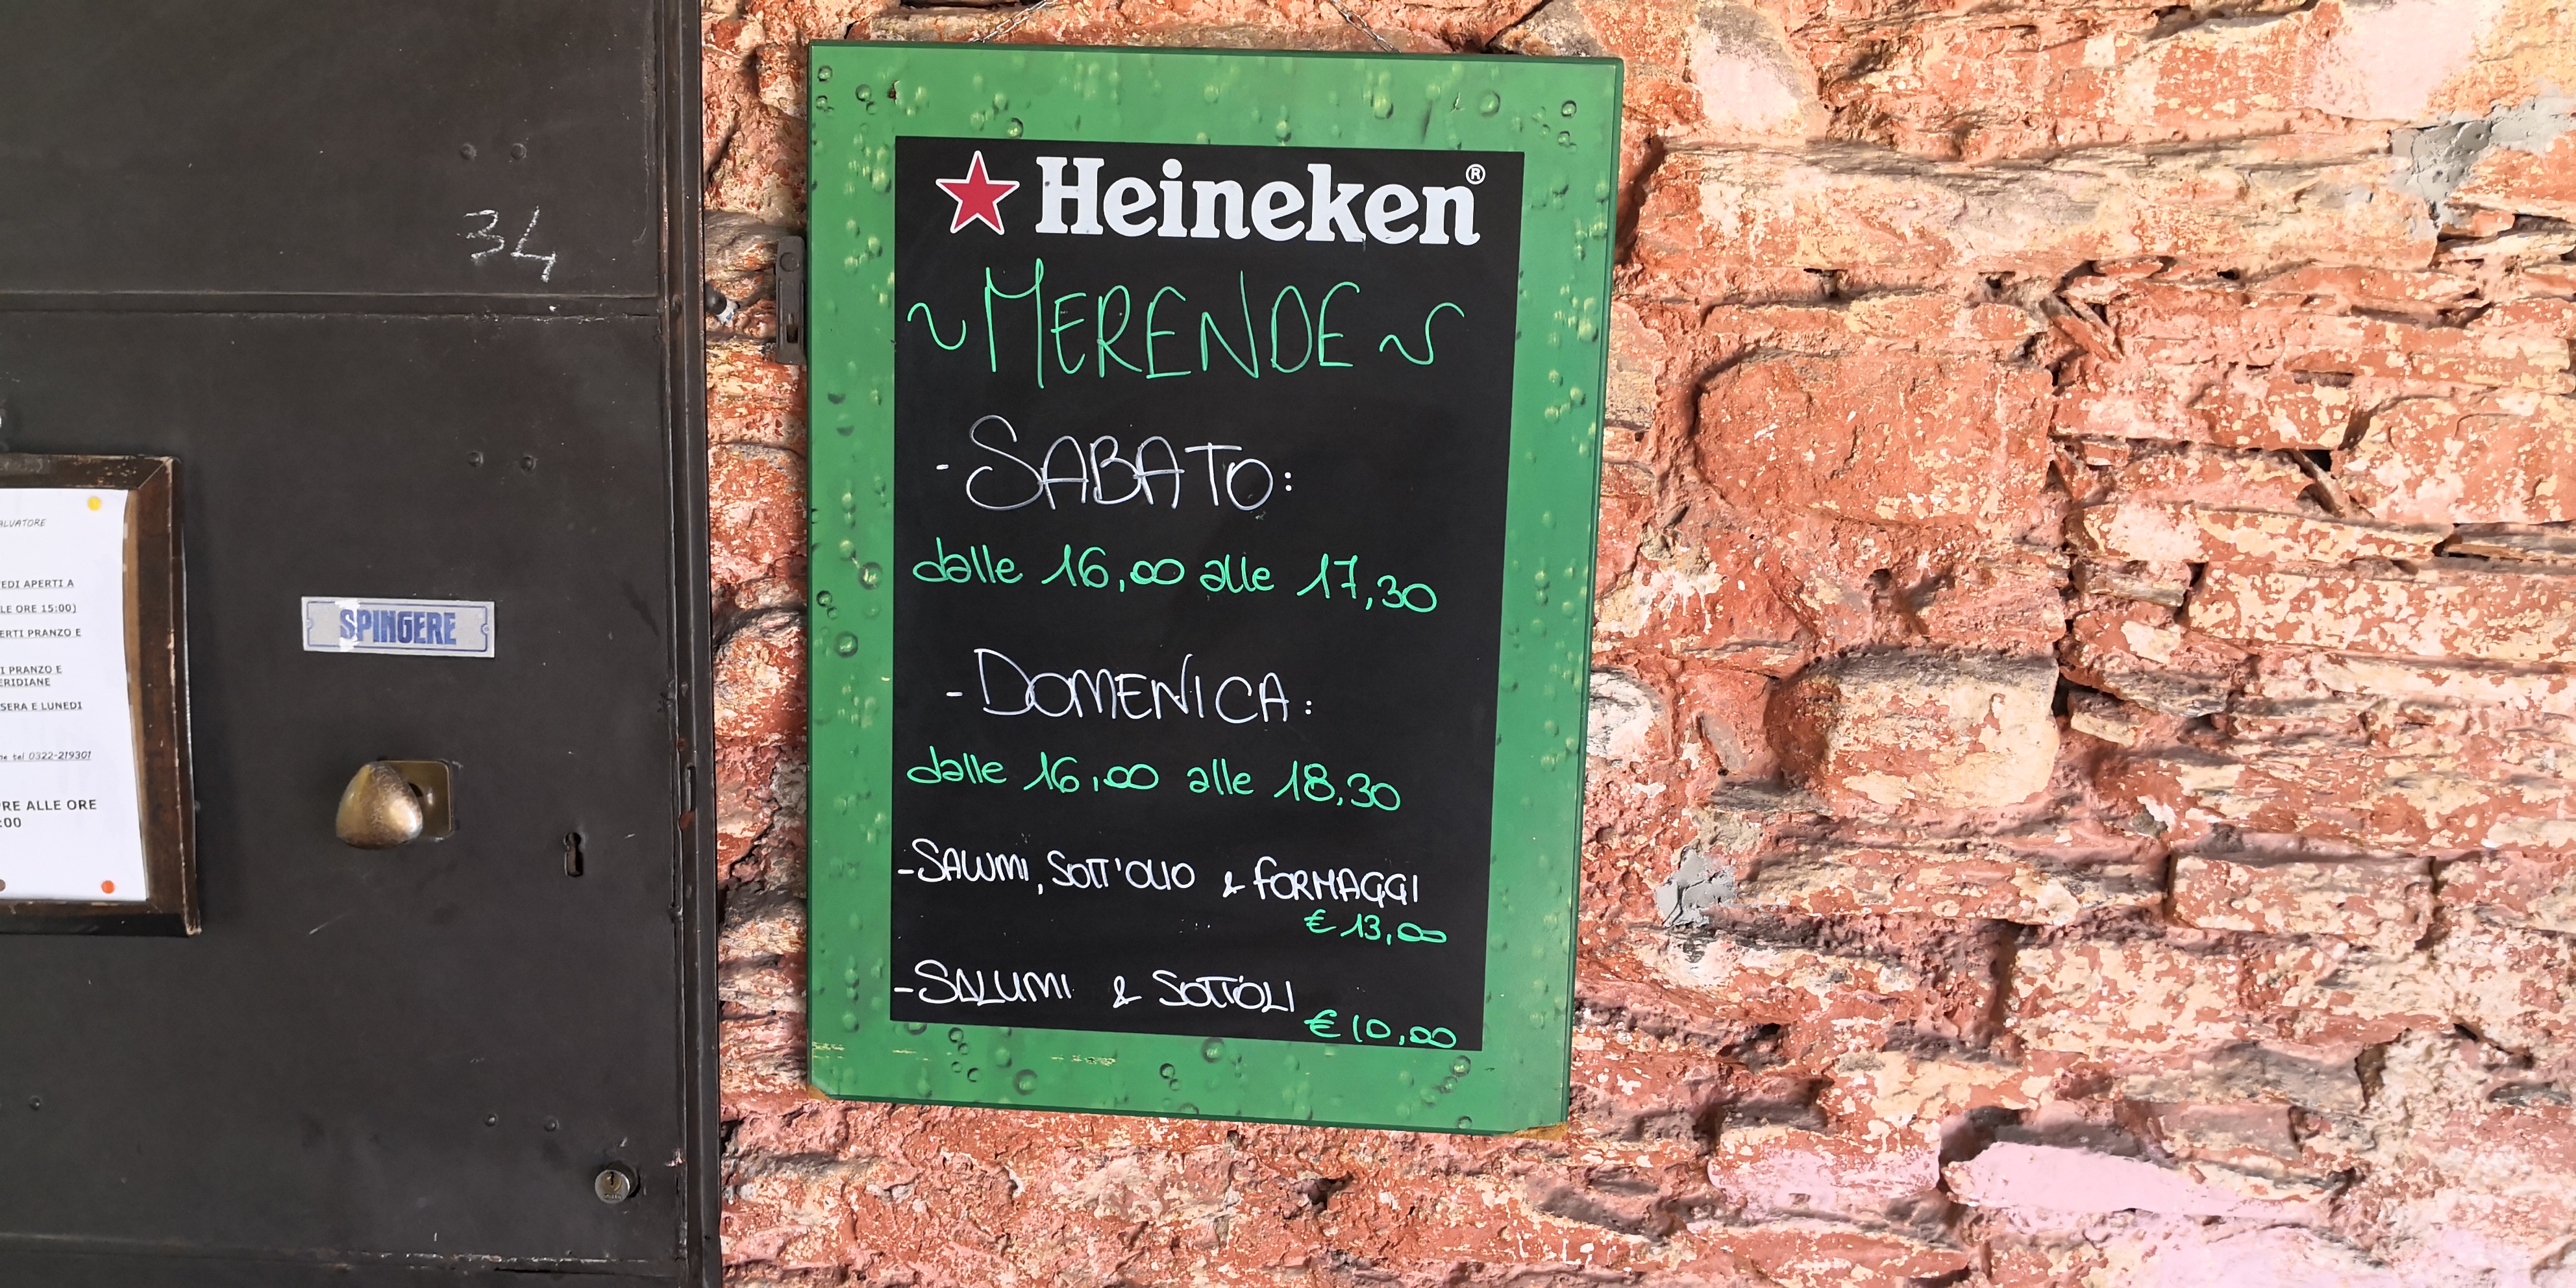 34
ALVATORE
EDI APERTI A
LE ORE 15:00)
ERTI PRANZO E
I PRANZO E
ERIDIANE
SERA E LUNEDI
ne tel 0322-219301
PRE ALLE ORE
:00
SPINGERE
Heineken®
~MERENDE~
-SABATO:
dalle 16,00 alle 17,30
-DOMENICA:
dalle 16,00 alle 18,30
-SALUMI, SOTT'OLIO & FORMAGGI
€ 13,00
-SALUMI & SOTT'OLI
€ 10,00